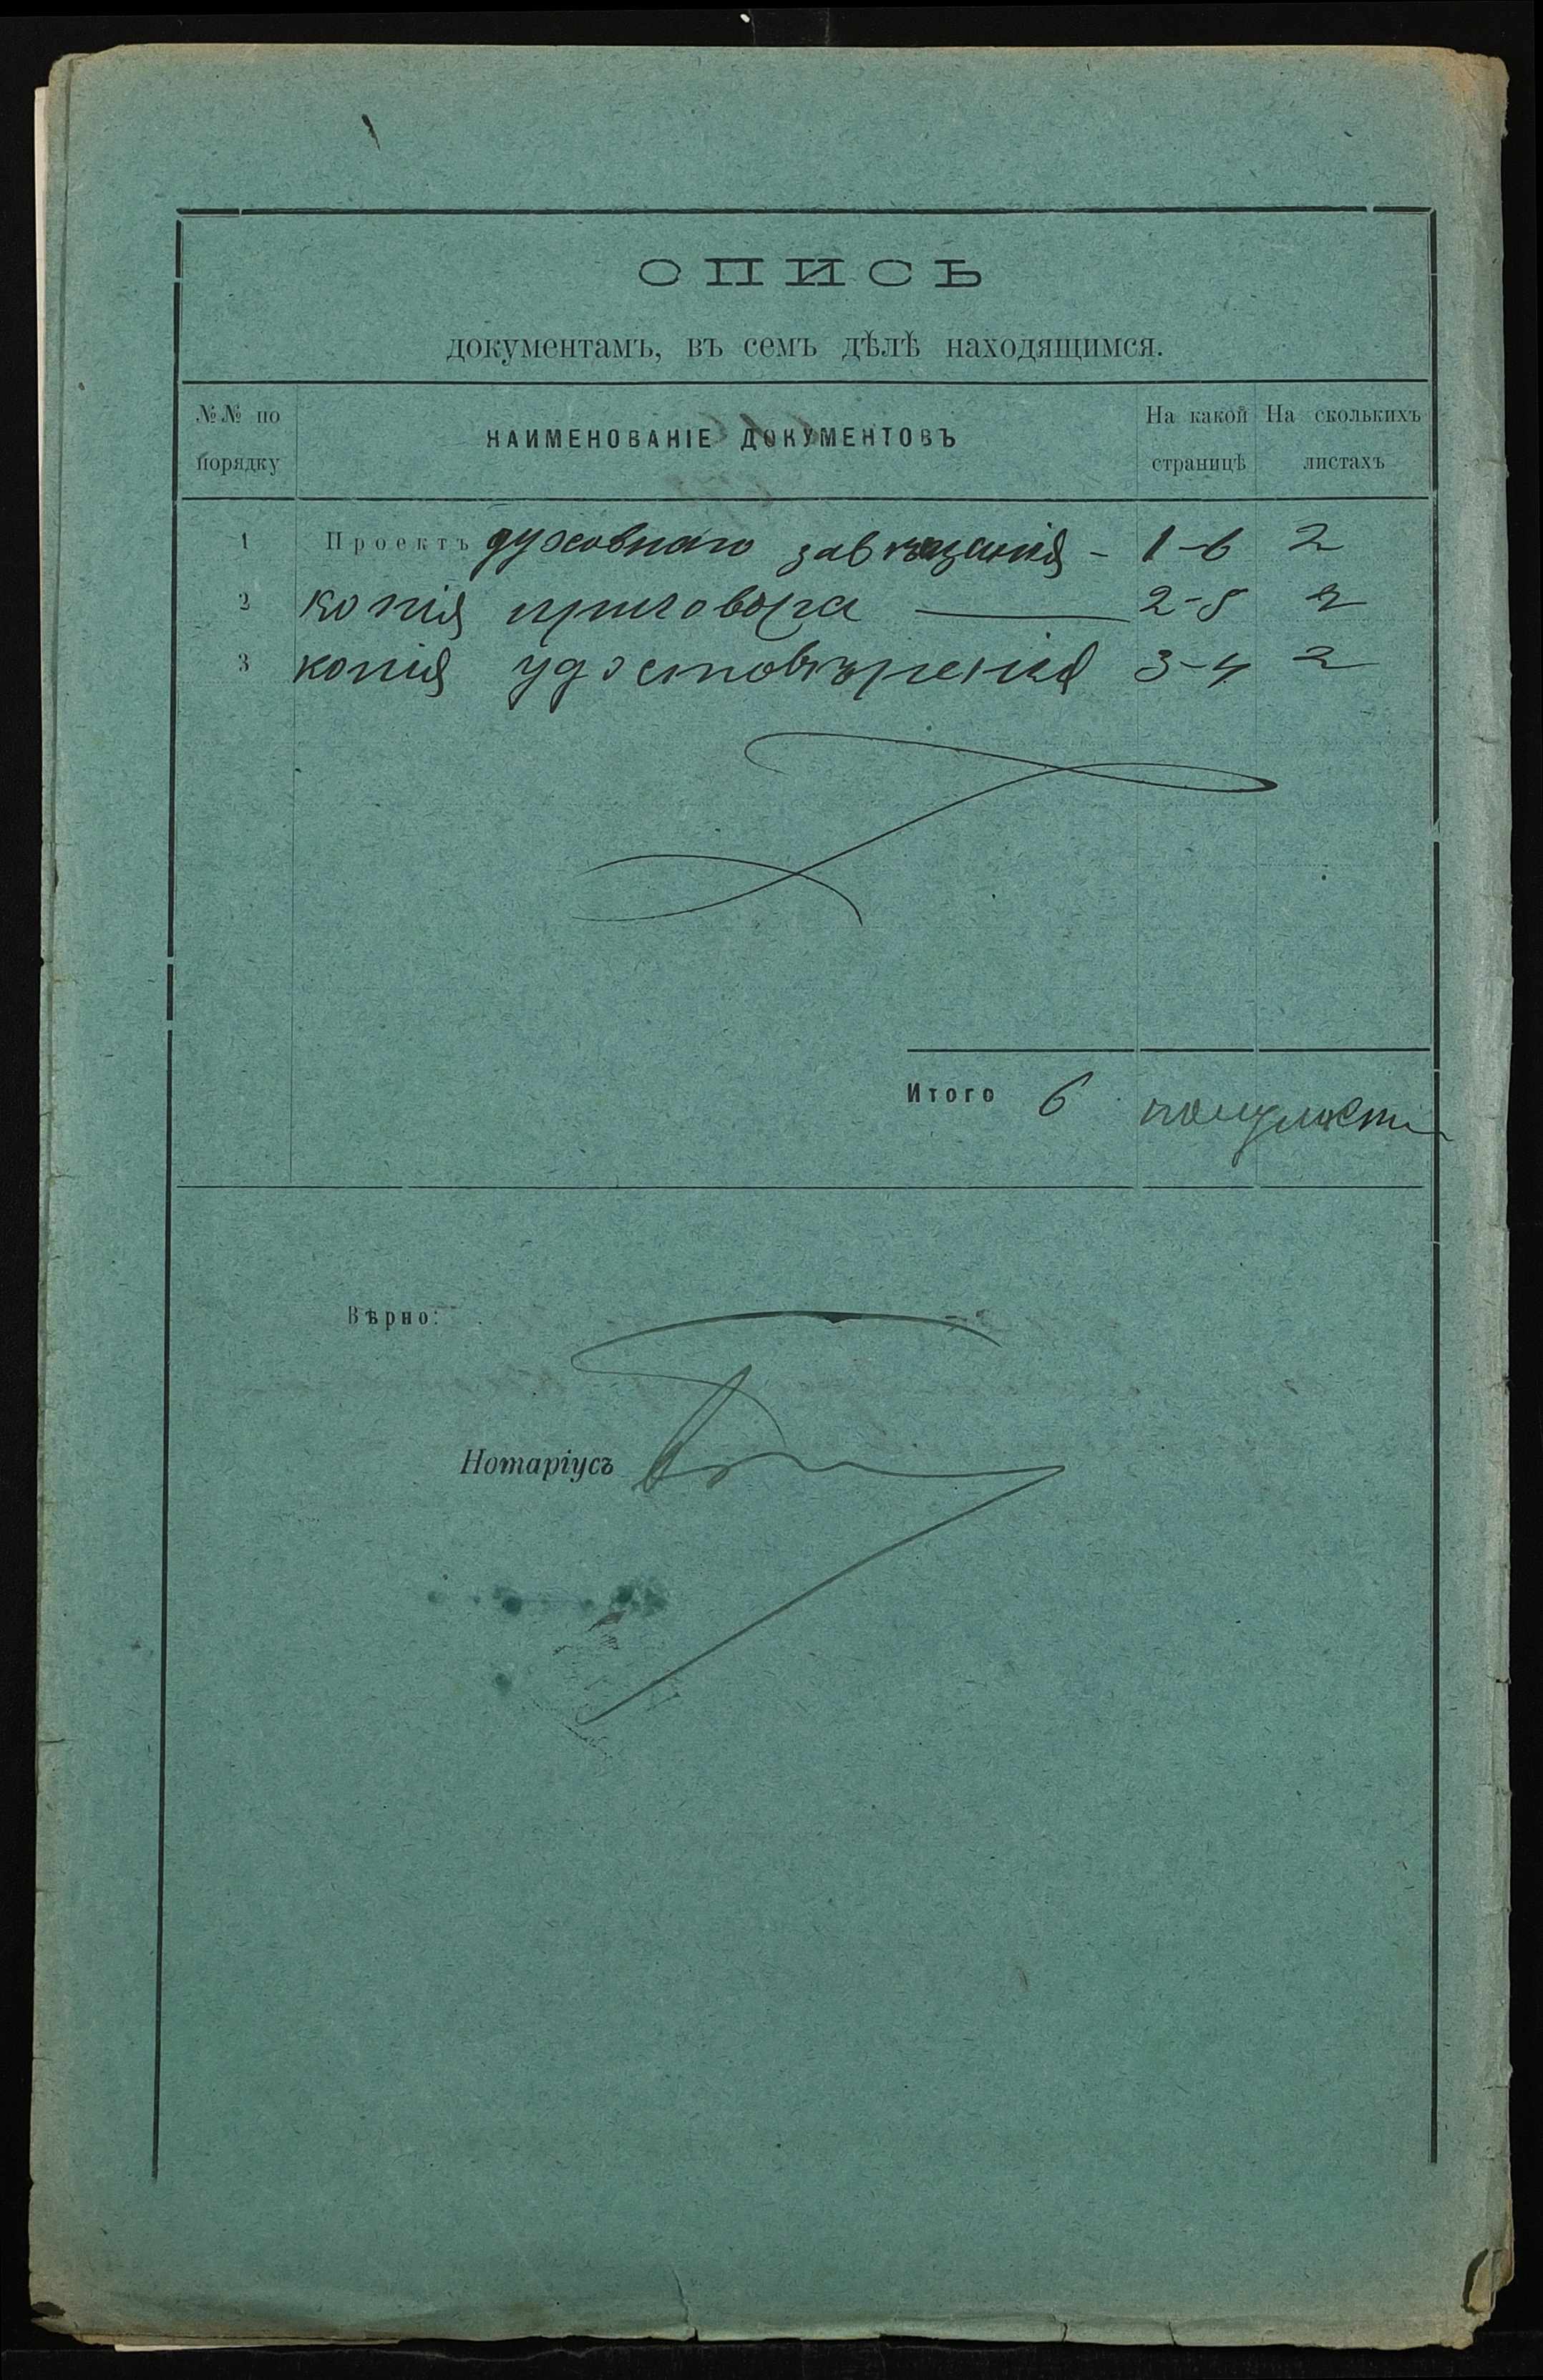 ОПИСЬ
документамъ, въ семъ дѣлѣ находящимся.
№№ по порядку
НАИМЕНОВАНІЕ ДОКУМЕНТОВЪ
На какой страницѣ
На сколькихъ листахъ
1 Проектъ духовнаго завѣщанія - 1-6 2
2 копія приговора — 2-5 2
3 копія удостовѣренія 3-4 2
Итого 6 полулист
Вѣрно:
Нотаріусъ